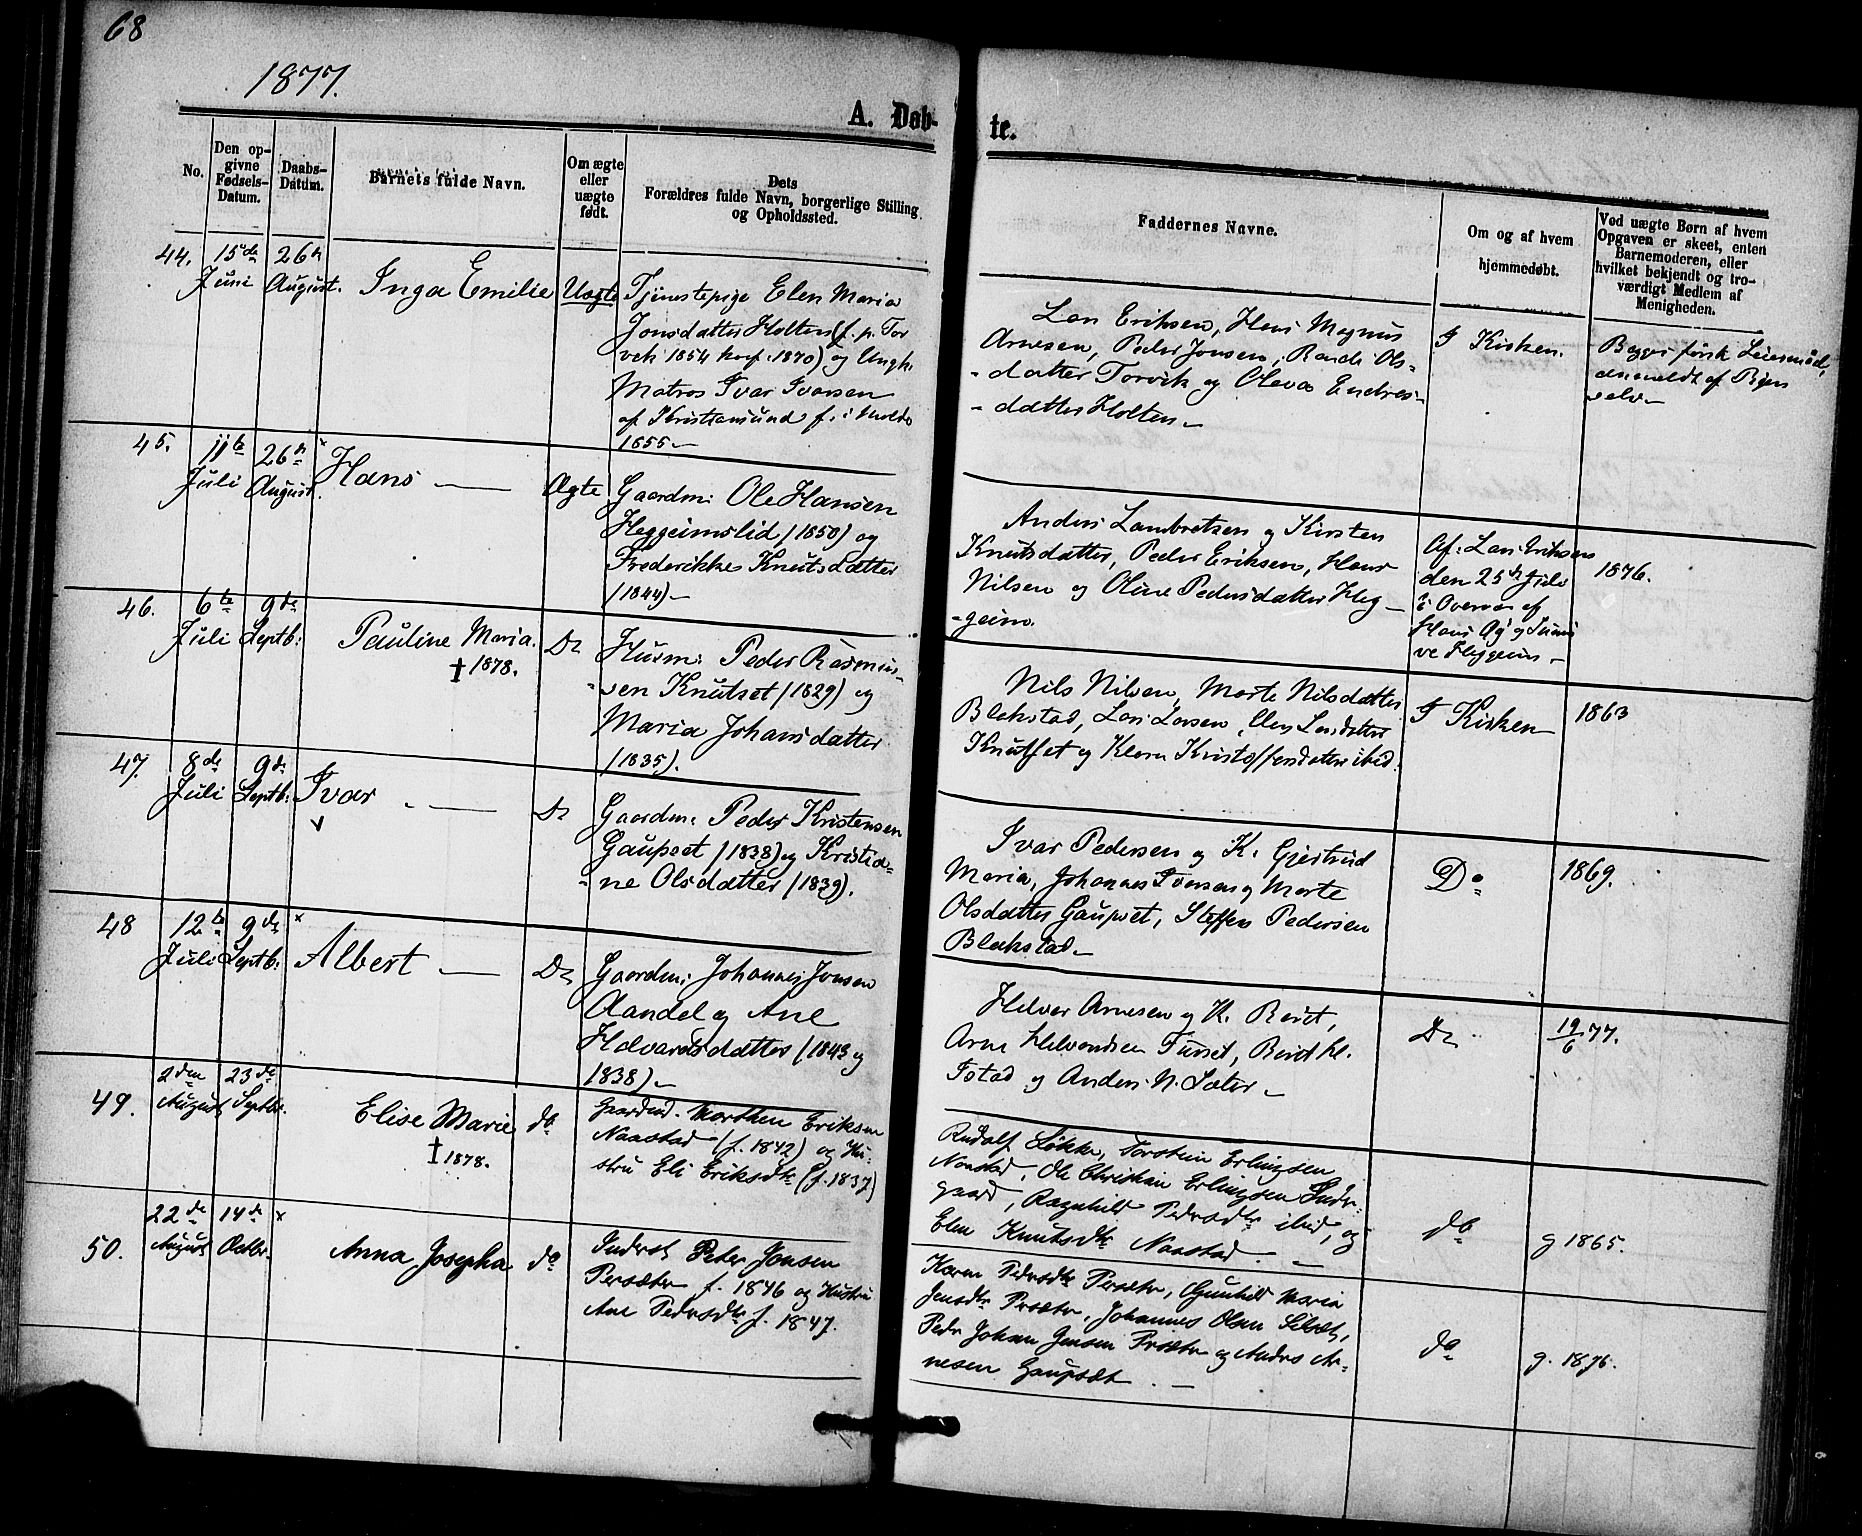 68
1877.
A. Døb-
te.
No.
Den op-
givne
Fødsels-
Datum.
Daabs-
Datum.
Barnets fulde Navn.
Om ægte
eller
uægte
født.
Dets
Forældres fulde Navn, borgerlige Stilling
og Opholdssted.
Faddernes Navne.
Om og af hvem
hjemmedøbt.
Ved uægte Børn af hvem
Opgaven er skeet, enten
Barnemoderen, eller
hvilket bekjendt og tro-
værdigt Medlem af
Menigheden.
44.
15de
Juni
26de
August.
Inga Emilie
Uægte
Tjenestepige Elen Maria
Jonsdatter Holten (f. p. Tor
vik 1854 konf. 1870) og Ungk.
Matros Ivar Ivarsen
af Kristiansund f. i Molde
1855
Lars Eriksen, Hans Magnus
Arnesen, Peder Jonsen, Ols-
datter Torvik og Oleva Endres-
datter Holten
I Kirken.
Begges første Leiermaal,
anmeldt af Pigen
selv
45.
11te
Juli
26de
August.
×
Hans
Ægte
Gaardm: Ole Hansen
Heggeimslid (1850) og
Frederikke Knutsdatter
(1844)
Anders Lambretsen og Kirsten
Knutsdatter, Peder Eriksen, Hans
Nilsen og Oline Pedersdatter Heg-
geim.
Af: Lars Eriksen
den 25de Juli
i Overvær af
Hans og
Heggeim
1876.
46.
6te
Juli
9de
Septb:
Pauline Maria.
† 1878.
Do
Husm: Peder Rasmus-
sen Knutset (1829) og
Maria Johansdatter
(1835).
Nils Nilsen, Marte Nilsdatter
Blakstad, Lars Larsen, Elen Larsdatter
Knutset og Klara Kristoffersdatter ibid.
I Kirken
1863
47.
8de
Juli
9de
Septb:
Ivar
v
Do
Gaardm: Peder Kristensen
Gaupset (1838) og Kristia-
ne Olsdatter (1839).
Ivar Pedersen og K. Gjertrud
Maria, Johannes Iversen og Marte
Olsdatter Gaupset, Steffen Pedersen
Blakstad
Do
1869.
48
12te
Juli
9de
Septb:
×
Albert
Do
Gaardm: Johannes Jonsen
Aandal og Ane
Halvardsdatter (1843 og
1838)
Halvor Arnesen og K. Berit,
Arne Halvordsen Furset, Berit H.
Istad og Anders N. Sæter
Do
19/6 77.
49.
2den
August
23de
Septbr.
Elise Marie
† 1878.
do
Gaardmd. Morthen Eriksen
Naastad (f. 1842) og Hu-
stru Eli Eriksdtr (f. 1837)
Rudolf Løkke, Torstein Erlingsen
Naastad, Ole Christian Erlingsen Inder-
gaard, Ragnhild Pedersdtr ibid, og
Elen Knutsdtr Naastad.
do
g 1865.
50.
22de
August
14de
Octbr.
×
Anna Josepha
do
Inderst Peter Jonsen
Persæter f. 1846 og Hustru
Ane Pedersdtr f. 1847.
Karen Pedersdtr Persæter, Gunhild Maria
Jensdtr Persæter, Johannes Olsen Silset,
Peder Johan Jensen Persæter og Anders Ar-
nesen Gaupset.
do
g. 1876.